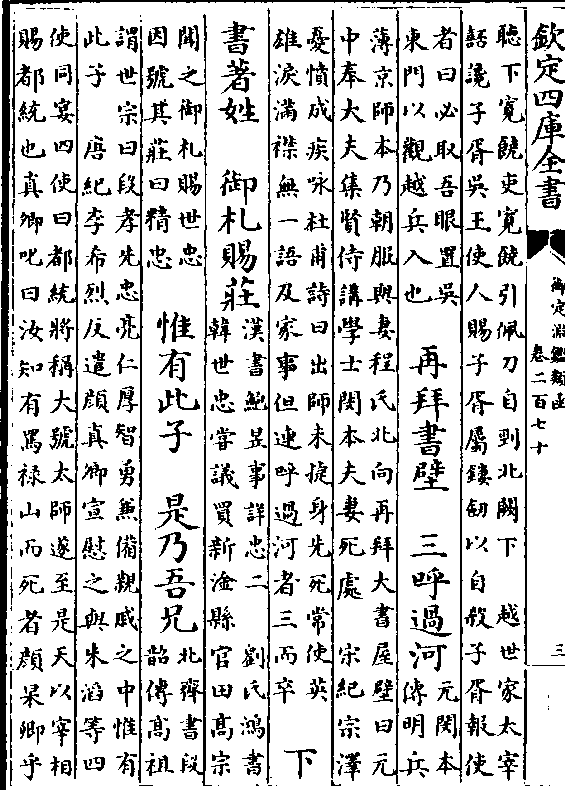 欽定四庫全書
御定淵鑑類函
卷二百七十
三
聽下寬饒吏寬饒引佩刀自剄北闕下　越世家太宰
嚭讒子胥吳王使人賜子胥屬鏤劒以自殺子胥報使
者曰必取吾眼置吳
東門以觀越兵入也
再拜書壁　三呼過河
元閔本
傳明兵
薄京師本乃朝服與妻程氏北向再拜大書屋壁曰元
中奉大夫集賢侍講學士閔本夫妻死處　宋紀宗澤
憂憤成疾咏杜甫詩曰出師未捷身先死常使英
雄淚滿襟無一語及家事但連呼過河者三而卒
下
書著姓　御札賜莊
漢書鮑昱事詳忠二　劉氏鴻書
韓世忠嘗議買新淦縣官田髙宗
聞之御札賜世忠
因號其莊曰精忠
惟有此子　是乃吾兄
北齊書段
韶傳髙祖
謂世宗曰段孝先忠亮仁厚智勇兼備親戚之中惟有
此子　唐紀李希烈反遣顔真卿宣慰之與朱滔等四
使同宴四使曰都統將稱大號太師遂至是天以宰相
賜都統也真卿叱曰汝知有罵禄山而死者顔杲卿乎